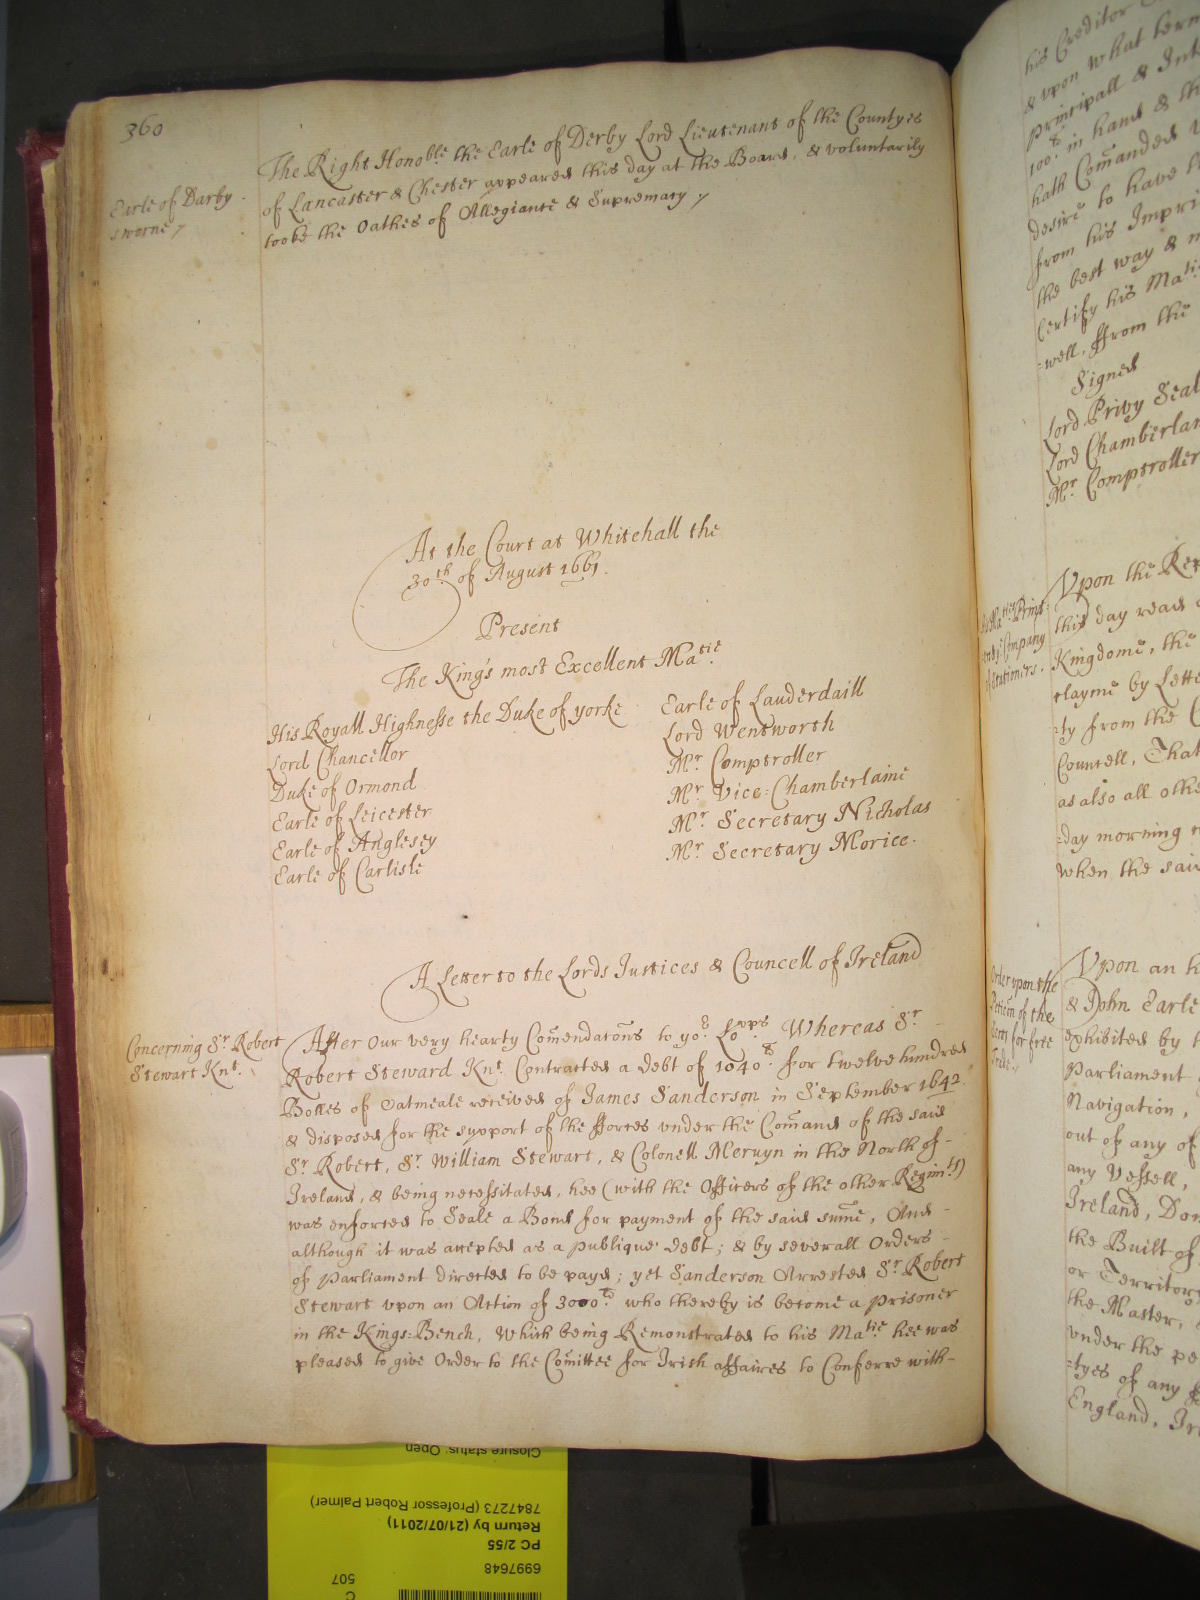 360
The Right Honoble the Earle of Derby Lord Lieutenant of the Countyes
of Lancaster & Chester appeared this day at the Board, & voluntarily
tooke the Oathes of Allegiance & Supremacy
Earle of Darby
sworne
At the Court at Whitehall the
30th of August 1661.
Present
The King's most Excellent Matie
His Royall Highnesse the Duke of yorke
Lord Chancellor
Duke of Ormond
Earle of Leicester
Earle of Anglesey
Earle of Carlisle
Earle of Lauderdaill
Lord Wentworth
Mr Comptroller
Mr Vice=Chamberlaine
Mr Secretary Nicholas
Mr Secretary Morice.
A Letter to the Lords Justices & Councell of Ireland
Concerning Sr Robert
Stewart Knt.
After our very hearty Comendatons to yor Lopps Whereas Sr
Robert Steward Knt. Contracted a debt of 1040li for twelve hundred
Bolles of Oatmeale received of James Sanderson in September 1642
& disposed for the support of the fforces under the Comand of the said
Sr Robert, Sr William Stewart, & Colonell Mervyn in the North of
Ireland, & being necessitated, hee (with the Officers of the other Regimts)
was enforced to Seale a Bond for payment of the said sume, And
although it was accepted as a publique debt; & by severall Orders
of Parliament directed to be payd; yet Sanderson Arrested Sr Robert
Stewart upon an Action of 3000li who thereby is become a prisoner
in the Kings=Bench, Which being Remonstrated to his Matie hee was
pleased to give Order to the Comittee for Irish affaires to Conferre with
his Creditor
& upon what term
principall & Int
100li in hand & th
hath Comanded
desire to have
from his Impri
the best way & m
Certify his Matie
=well, ffrom the
Signed
Lord Privy Seal
Lord Chamberlai
Mr Comptroller
Company
Stationers.
Upon the
this day read
Kingdome, the
clayme by Lette
=ty from the
Councell, That
as also all othe
=day morning
when the said
Order upon the
Peticon of the
for free
Trade.
Upon an
& John Earle
exhibited by
Parliament
Navigation,
out of any of
any Vessell,
Ireland, Dom
the Built of
or Territory
the Master,
under the pe
=tyes of any
England, Ire
Closure status: Open
7847273 (Professor Robert Palmer)
Return by (21/07/2011)
PC 2/55
6997648
507
C